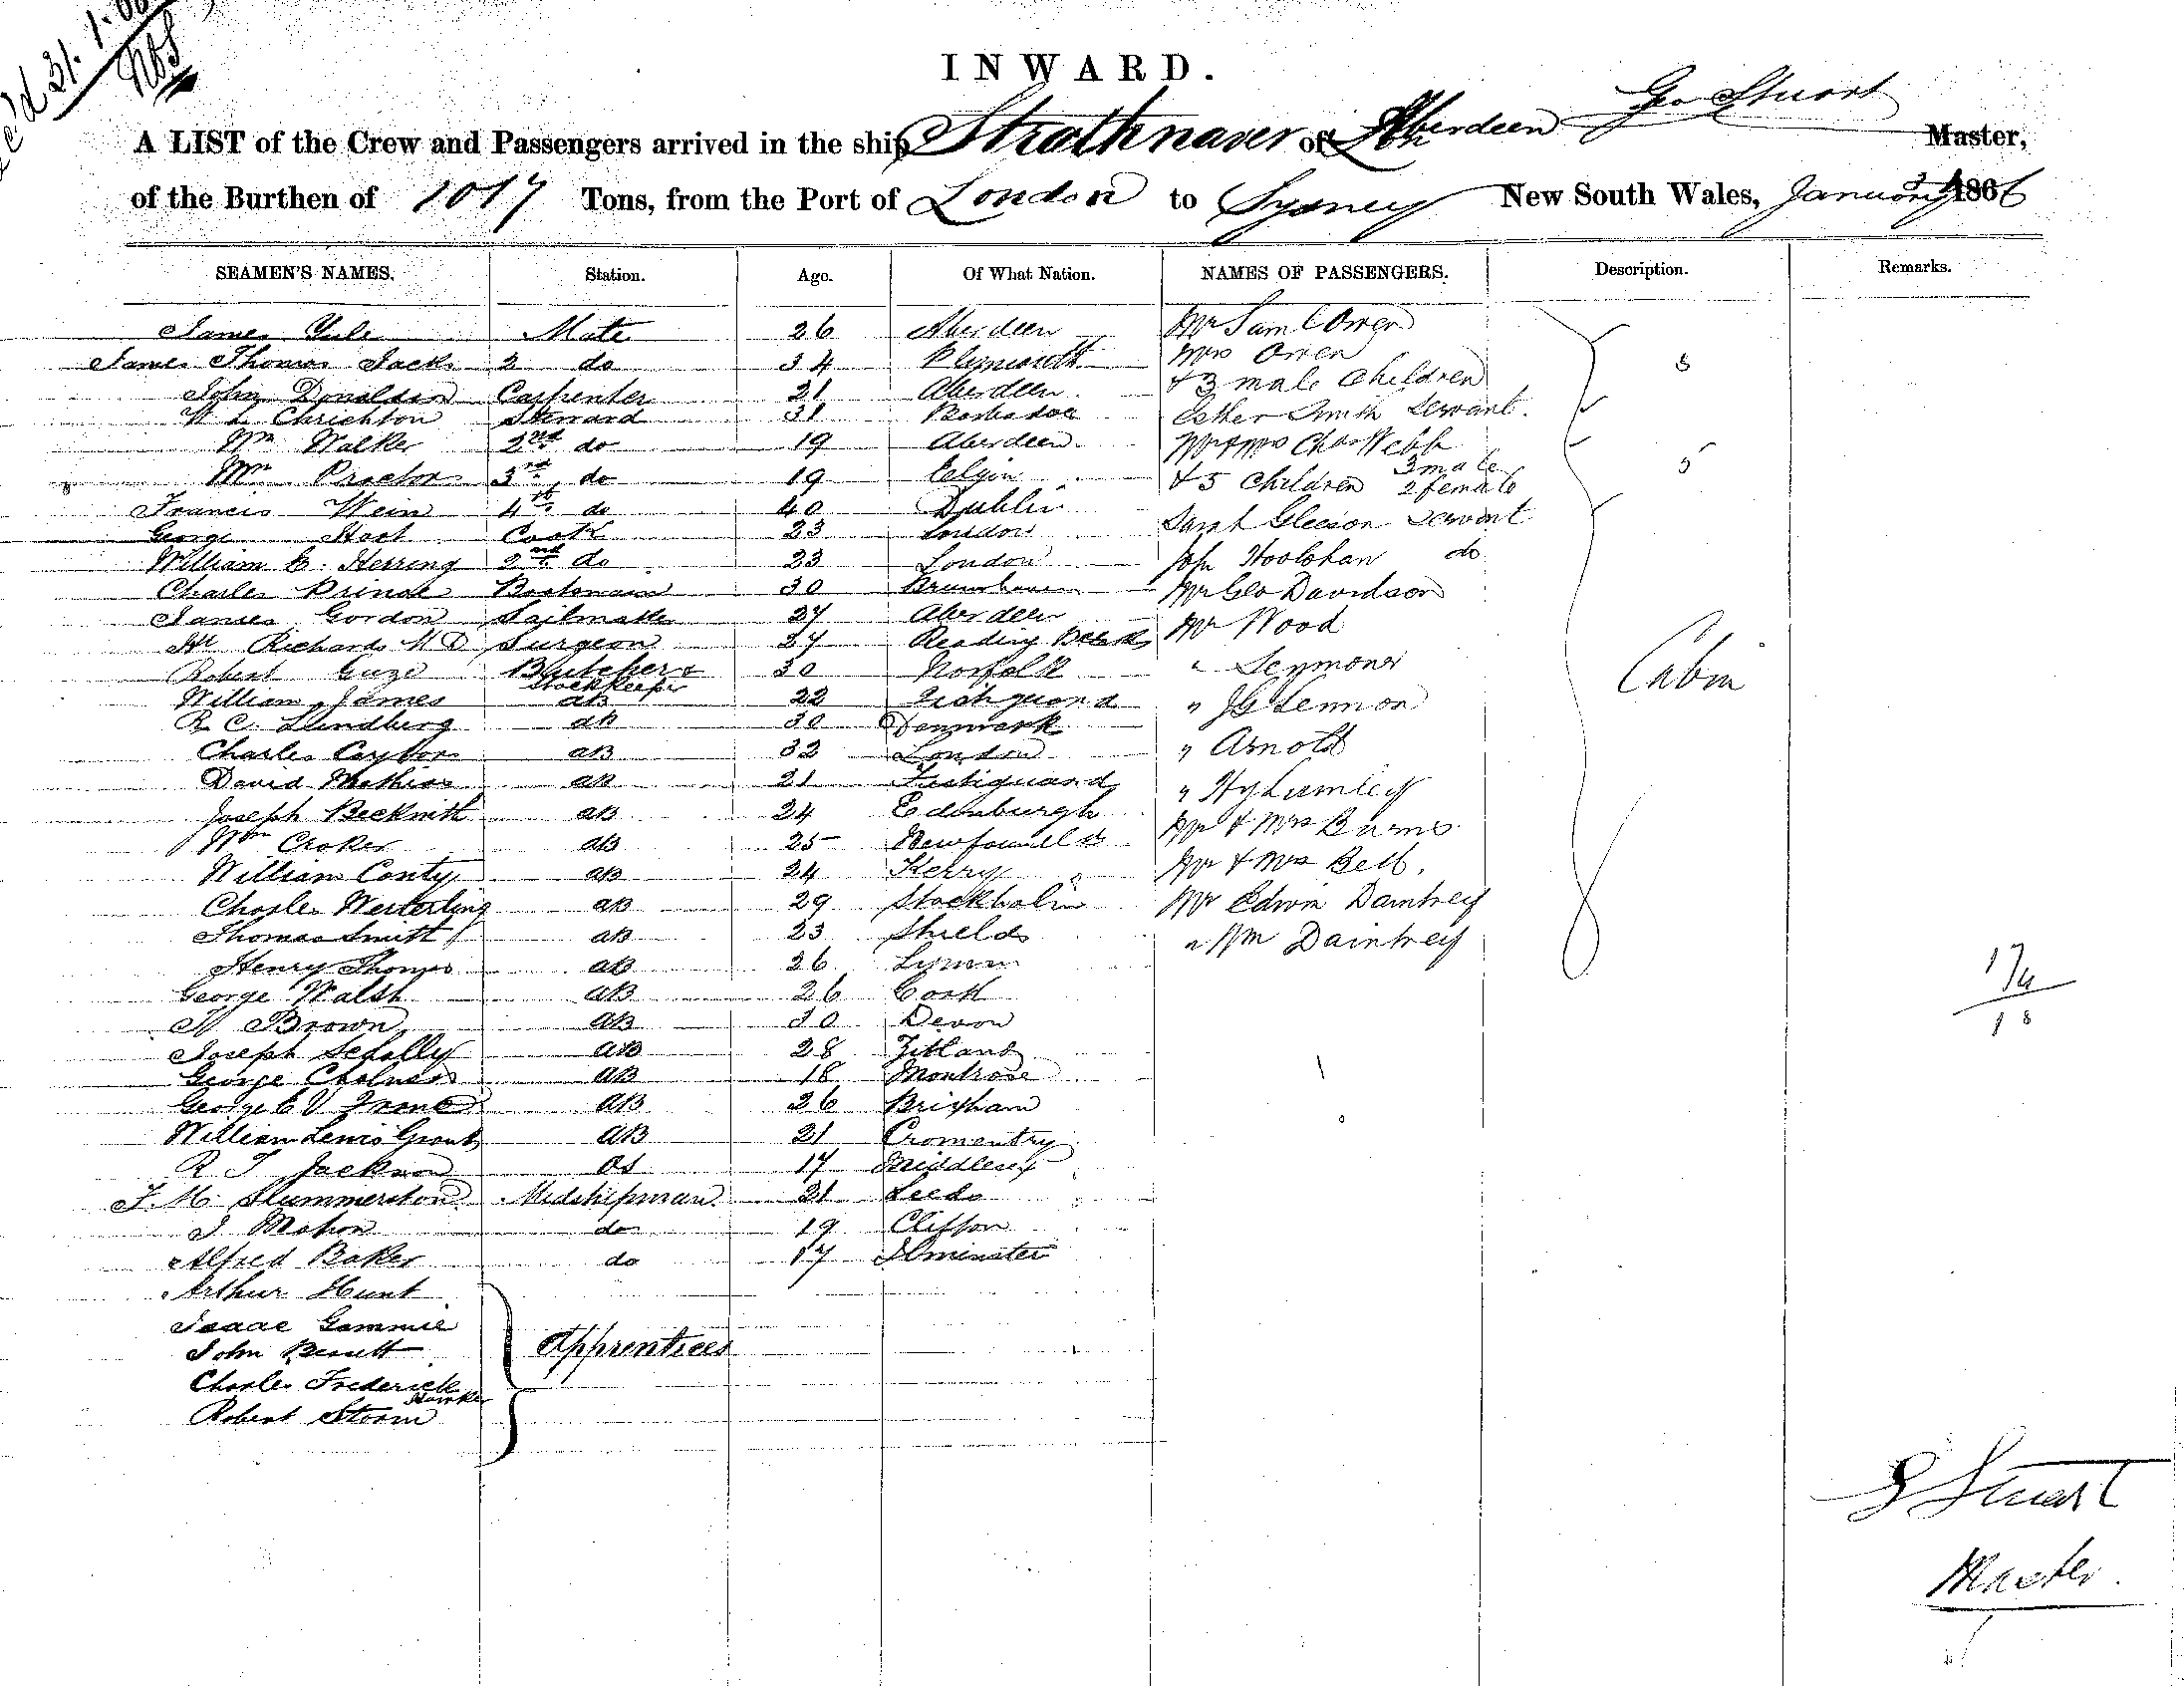 INWARD.
A LIST of the Crew and Passengers arrived in the ship Strathnaver of Aberdeen Geo Stuart Master,
of the Burthen of 1017 Tons, from the Port of London to Sydney New South Wales, January 1866
SEAMEN'S NAMES. Station. Age. Of What Nation. NAMES OF PASSENGERS. Description. Remarks.
James Yule Mate 26 Aberdeen Mr Saml Owen
James Thomas Jacks 2 do 34 Plymouth Mrs Owen
John Donaldson Carpenter 21 Aberdeen & 3 male Children
W L Chrichton Steward 31 Barbadoe Esther Smith Servant.
Wm Walker 2nd do 19 Aberdeen Mr & Mrs Chas Webb
Wm Proctor 3rd do 19 Eelgin & 5 Children 3 male 2 female
Francis Wein 4th do 40 Dublin Sarah Gleeson Servant
George Hart Cook 23 London
William B. Herring 2nd do 23 London John Hoolohan do
Charles Prince Boatswain 30 Mr Geo Davidson
James Gordon Sailmaker 27 Aberdeen Mr Wood
Richards M D Surgeon 27 Reading
Robert Guze Butcher & Stockkeeper 30 Norfolk " Seymour
William James AB 22 " J G Lennon
R C. Lindberg AB 30 Denmark
Charles AB 32 London " Arnold
David Mathias AB 21 " Hy Lumley
Joseph Beckwith AB 24 Edinburgh Mr & Mrs Burns
Wm Croker AB 25
William Conty AB 24 Kerry Mr & Mrs Bell.
Charles Westerling AB 29 Stockholm Mr Edwin Daintrey
Thomas Smith AB 23 Shields " Wm Daintrey
Henry Thomas AB 26
George Walsh AB 26 Cork
W Brown AB 30 Devon
Joseph Scholly AB 28 Zetland
George Chalmers AB 18 Montrose
George E V AB 26 Brixham
William Lewis Grant AB 21
R T Jackson OS 17 Middlesex
F. M. Slummerston Midshipman 21 Leeds
J Mahon do 19 Clifton
Alfred Baker do 17 Ilminster
Arthur Hunt
Isaac Gammie
John
Charles Frederick Hawker
Robert Storm
Apprentices
Cabin
G Stuart
Master